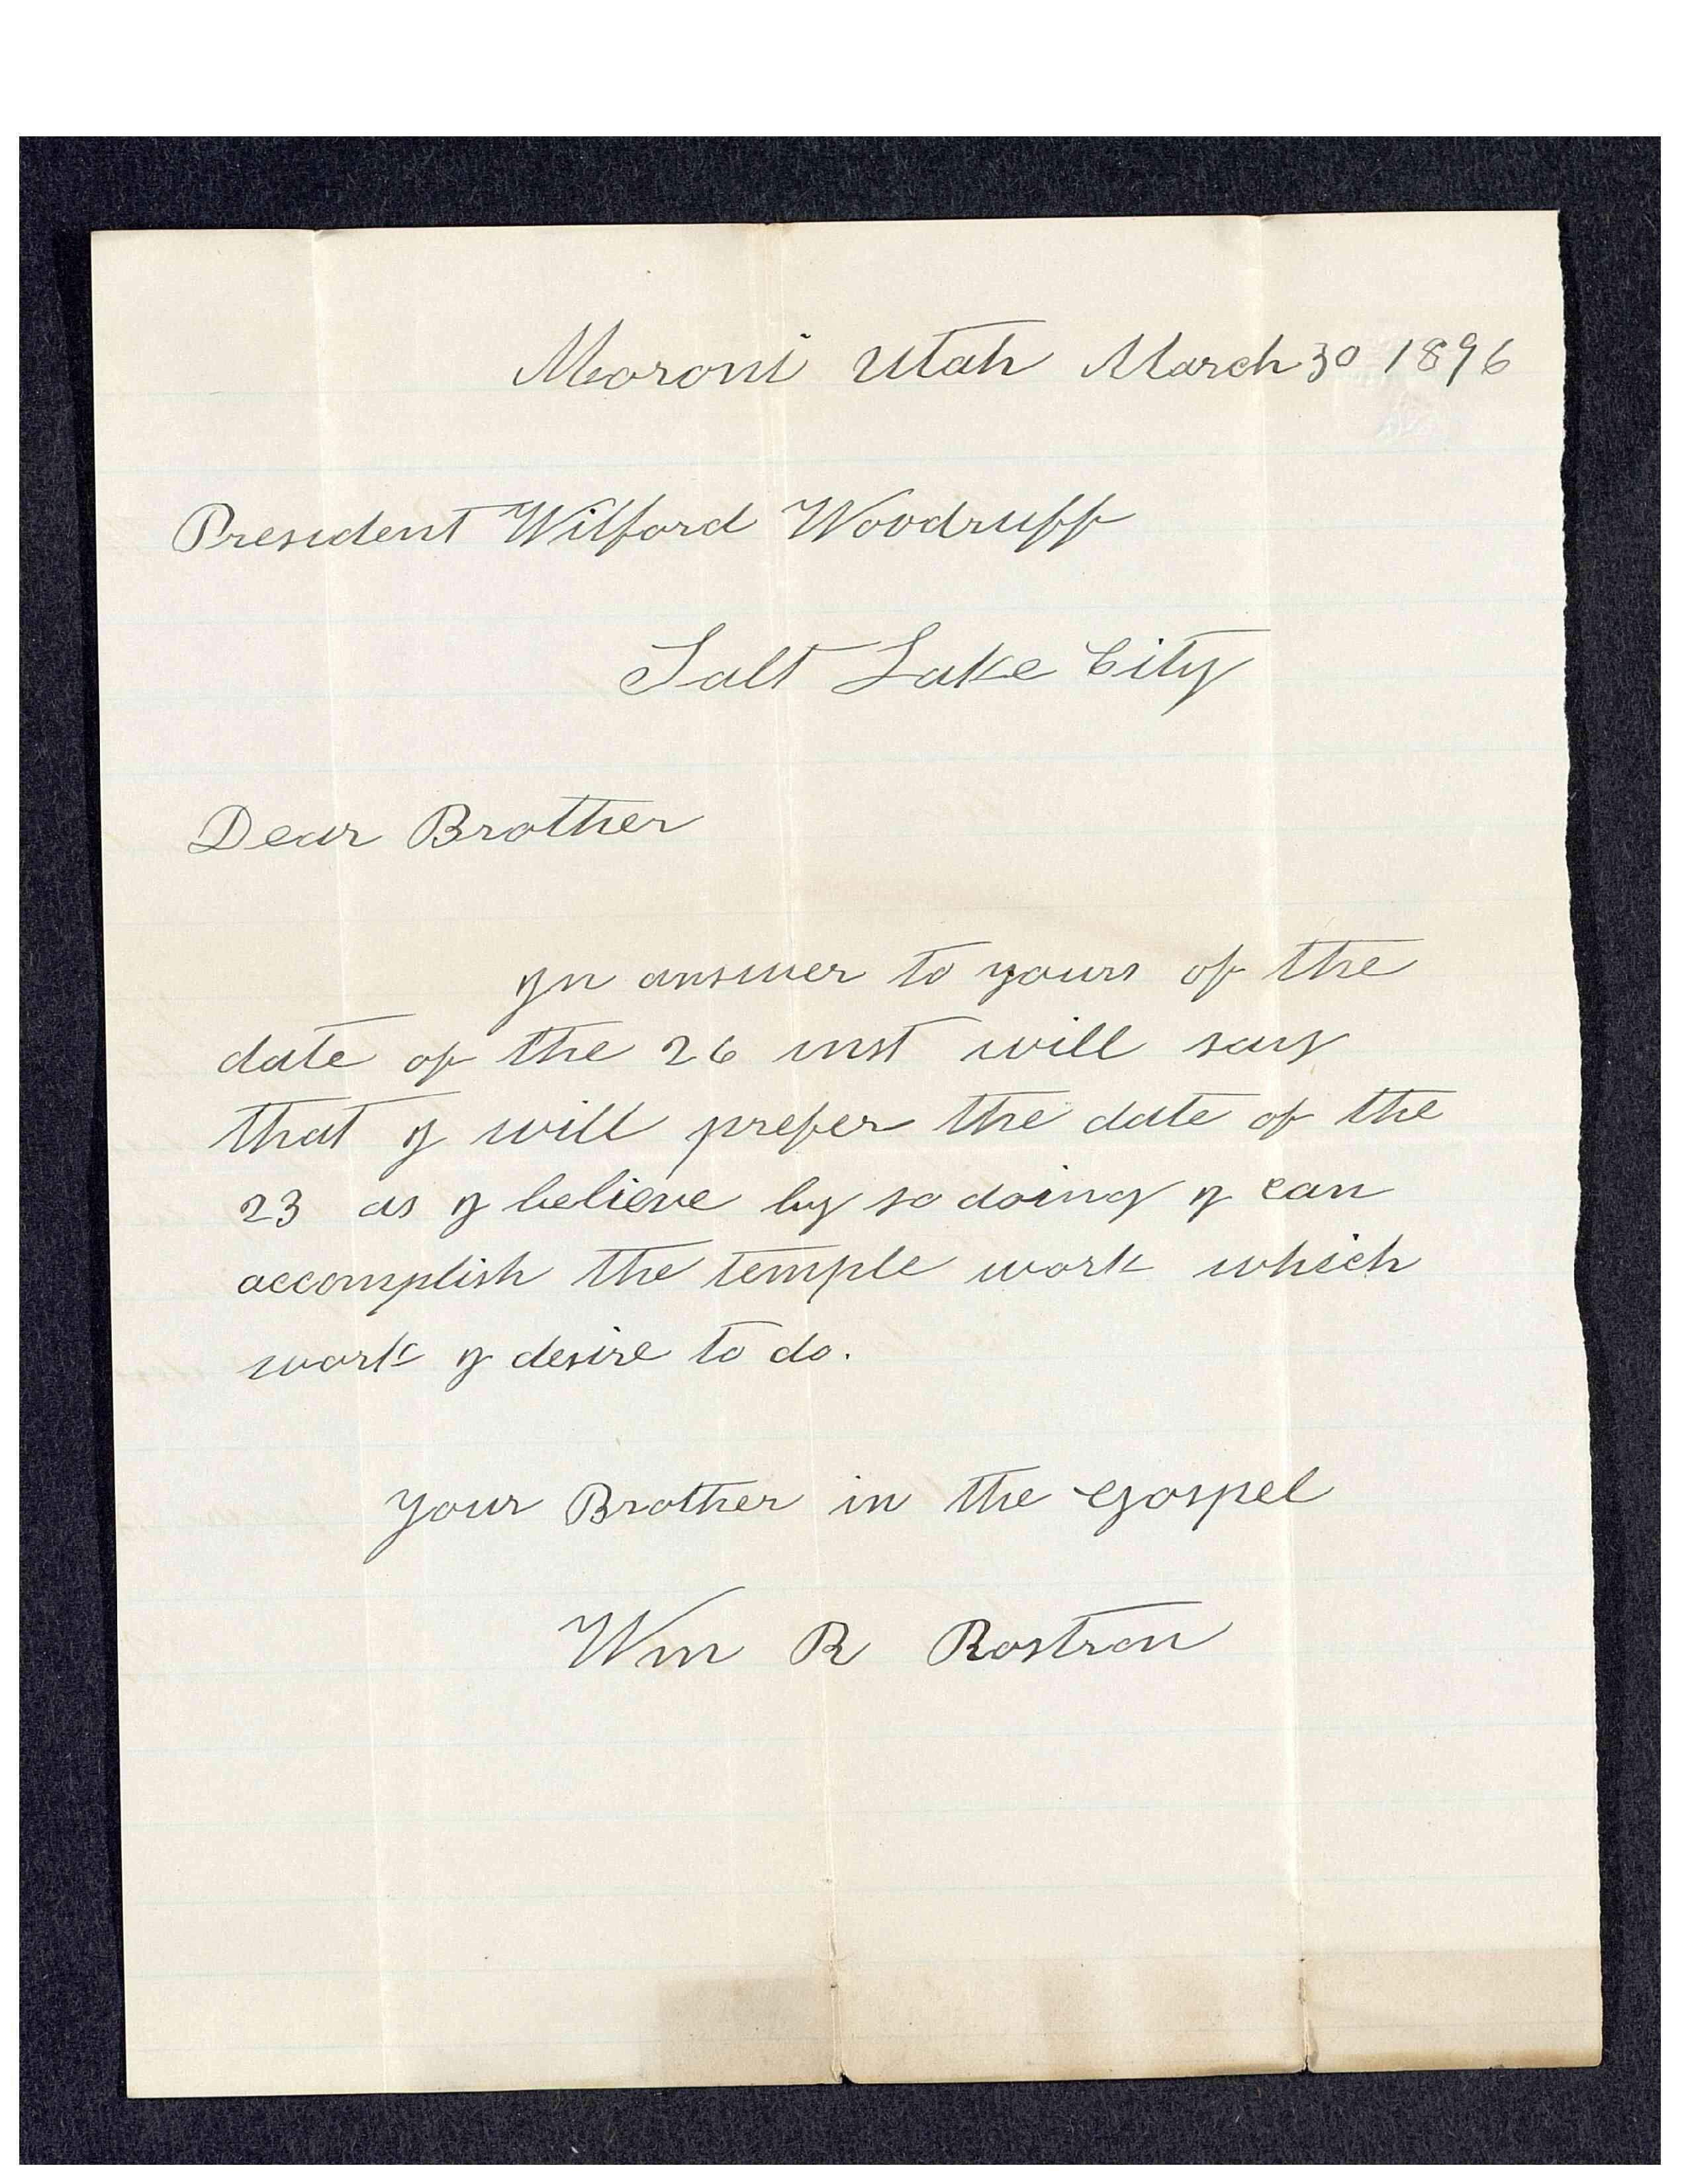 Moroni Utah March 30 1896
President Wilford Woodruff
Salt Lake City
Dear Brother
In answer to yours of the
date of the 26 inst will say
that I will prefer the date of the
23 as I believe by so doing I can
accomplish the temple work which
work I desire to do.
Your Brother in the Gospel
Wm R Rostron